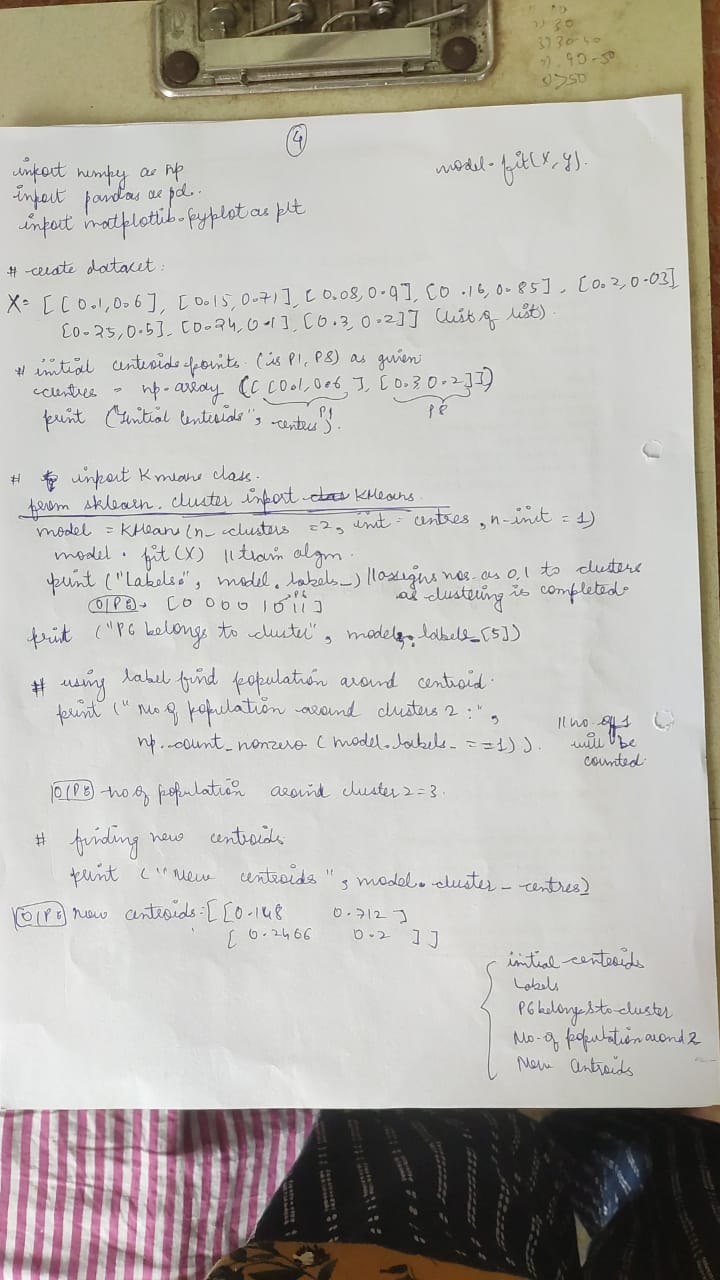 1) 30
3) 30-40
90-50
>50
4
import numpy as np
model. fit(X, y).
import pandas as pd.
import matplotlib.pyplot as plt
# create dataset:
X= [[0.1,0.6], [0.15,0.71], [0.08,0.9], [0.16,0.85], [0.2,0.03],
[0.25,0.5], [0.24,0.1], [0.3,0.2]] (list of list).
# initial centroids points. (is P1, P8) as given
centres = np.array ([[0.1,0.6], [0.3 0.2]])
P1
P8
print ("Initial Centroids", centers).
# import Kmeans class.
from sklearn. cluster import KMeans.
model = KMeans(n_clusters =2, init= centres, n-init = 1)
model . fit (X) // train algm.
print ("Labels:", model. labels_) // assigns nos. as 0,1 to clusters
as clustering is completed.
P6
O/P: [0 0 0 0 1 0 1 1]
print ("P6 belongs to cluster", model. labels_[5])
# using label find population around centroid.
print (" No of population around clusters 2 :",
// no. of 1
np. count_nonzero (model. labels_ ==1)).
will be
counted.
O/P: no of population around cluster 2 = 3.
# finding new centroids
print ("New centroids", model. cluster_centres)
O/P: new centroids: [[0.148 0.712]
[0.2466 0.2 ]]
initial centroids
Labels
P6 belongs to cluster
No. of population arond 2
New Centroids